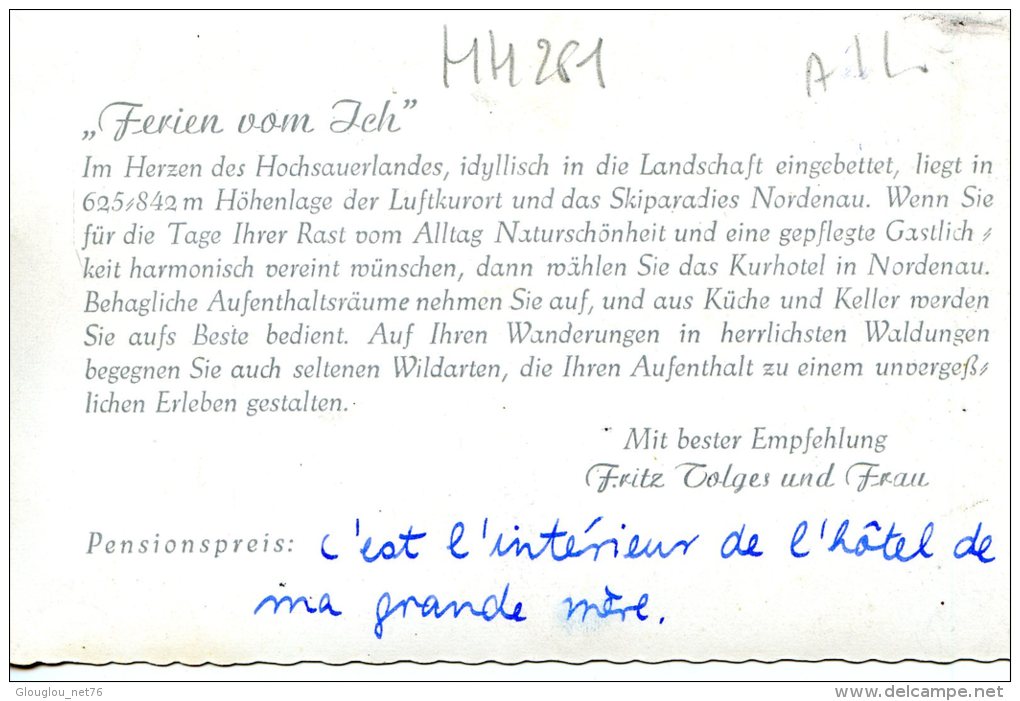 MH 281
„Ferien vom Ich”
Im Herzen des Hochsauerlandes, idyllisch in die Landschaft eingebettet, liegt in
625-842 m Höhenlage der Luftkurort und das Skiparadies Nordenau. Wenn Sie
für die Tage Ihrer Rast vom Alltag Naturschönheit und eine gepflegte Gastlich-
keit harmonisch vereint wünschen, dann wählen Sie das Kurhotel in Nordenau.
Behagliche Aufenthaltsräume nehmen Sie auf, und aus Küche und Keller werden
Sie aufs Beste bedient. Auf Ihren Wanderungen in herrlichsten Waldungen
begegnen Sie auch seltenen Wildarten, die Ihren Aufenthalt zu einem unvergeß-
lichen Erleben gestalten.
Mit bester Empfehlung
Fritz Tolges und Frau
Pensionspreis: c'est l'intérieur de l'hôtel de
ma grande mère.
Glouglou_net76
www.delcampe.net